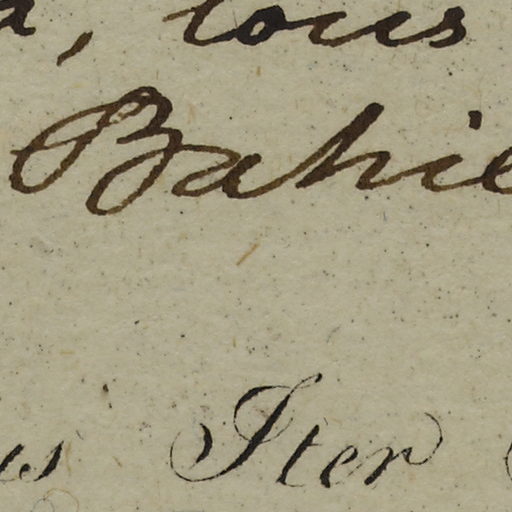 a, locis
Bahie
us Iter